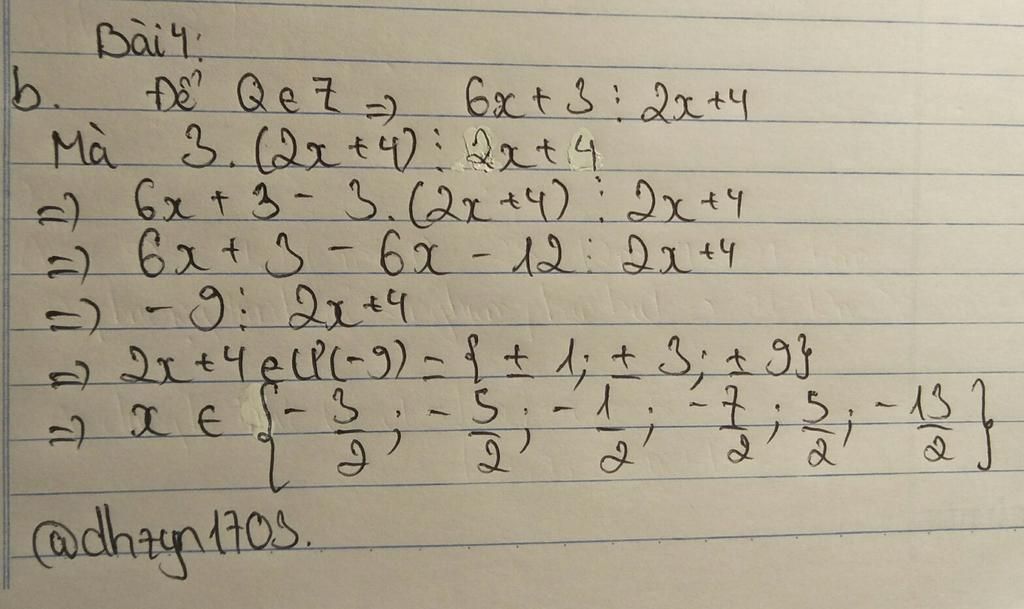 Bài 4:
b. Để Q ∈ Z => 6x + 3 ⋮ 2x + 4
Mà 3.(2x + 4) ⋮ 2x + 4
=> 6x + 3 - 3.(2x + 4) ⋮ 2x + 4
=> 6x + 3 - 6x - 12 ⋮ 2x + 4
=> -9 ⋮ 2x + 4
=> 2x + 4 ∈ Ư(-9) = {± 1; ± 3; ± 9}
=> x ∈ {-3/2; -5/2; -1/2; -7/2; 5/2; -13/2}
@dhzyn1703.